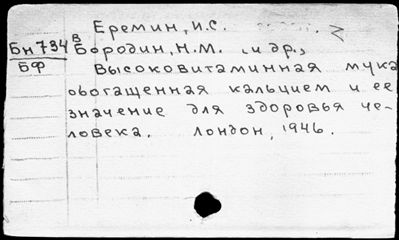 Еремин, И.С.
Бн734 В Бородин, Н.М. и др.,
БФ Высоковитаминная мука
обогащенная кальцием и ее
значение для здоровья че-
ловека. Лондон, 1946.